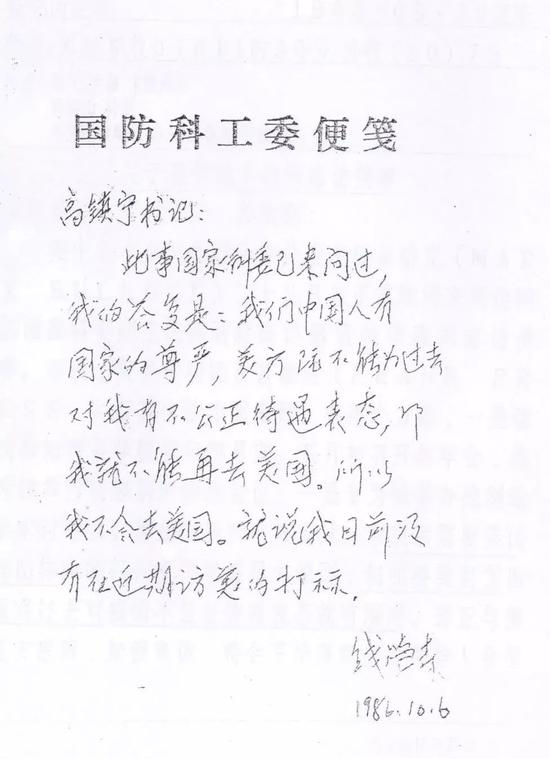 国防科工委便笺
高镇宁书记：
此事国家科委已来问过，
我的答复是：我们中国人有
国家的尊严，美方既不能为过去
对我有不公正待遇表态，那
我就不能再去美国。所以
我不会去美国。就说我目前没
有在近期访美的打祘。
钱学森
1986.10.6